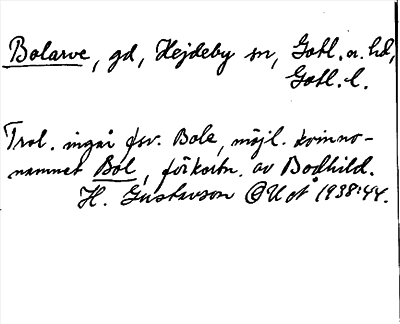 Bolarve, gd, Hejdeby sn, Gotl. n. hd,
Gotl. l.
Trol. ingår fsv. Bole, möjl. kvinno-
namnet Bol, förkortn. av Bodhild.
H. Gustavson GUÅ 1938:44.